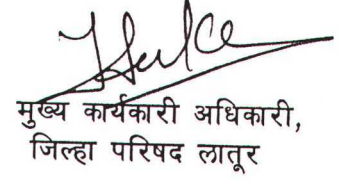 मुख्य कार्यकारी अधिकारी,
जिल्हा परिषद लातूर